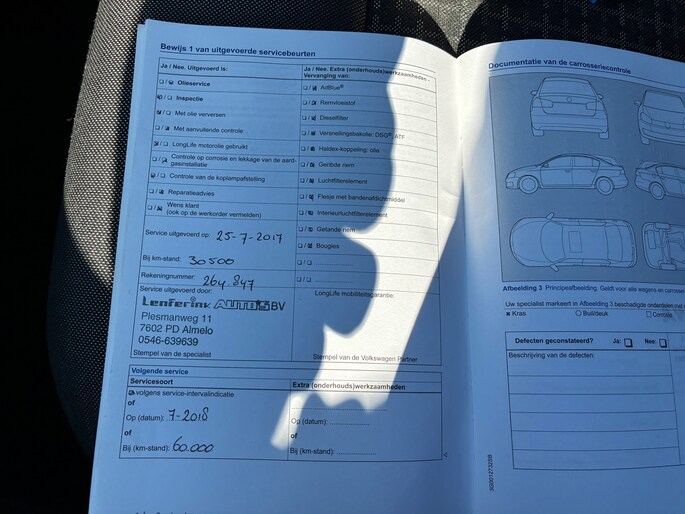 Bewijs 1 van uitgevoerde servicebeurten
Ja / Nee. Uitgevoerd is:
Olieservice
Inspectie
Met olie verversen
Met aanvullende controle
LongLife motorolie gebruikt
Controle op corrosie en lekkage van de aard-
gasinstallatie
Controle van de koplampafstelling
Reparatieadvies
Wens klant
(ook op de werkorder vermelden)
Service uitgevoerd op: 25-7-2017
Bij km-stand: 30500
Rekeningnummer: 264.847
Service uitgevoerd door:
Lenferink AUTO'S BV
Plesmanweg 11
7602 PD Almelo
0546-639639
Stempel van de specialist
Ja / Nee. Extra (onderhouds)werkzaamheden -
Vervanging van:
AdBlue®
Remvloeistof
Dieselfilter
Versnellingsbakolie: DSG®, ATF
Haldex-koppeling: olie
Geribde riem
Luchtfilterelement
Flesje met bandenafdichtmiddel
Interieurluchtfilterelement
Getande riem
Bougies
LongLife mobiliteitsgarantie:
Stempel van de Volkswagen Partner
Volgende service
Servicesoort
volgens service-intervalindicatie
of
Op (datum): 7-2018
of
Bij (km-stand): 60.000
Extra (onderhouds)werkzaamheden
Op (datum):
of
Bij (km-stand):
Documentatie van de carrosseriecontrole
Afbeelding 3 Principeafbeelding. Geldt voor alle wagens en carrosseri
Uw specialist markeert in Afbeelding 3 beschadigde onderdelen met
Kras
Buil/deuk
Corrosie
Defecten geconstateerd?
Ja:
Nee:
Beschrijving van de defecten: